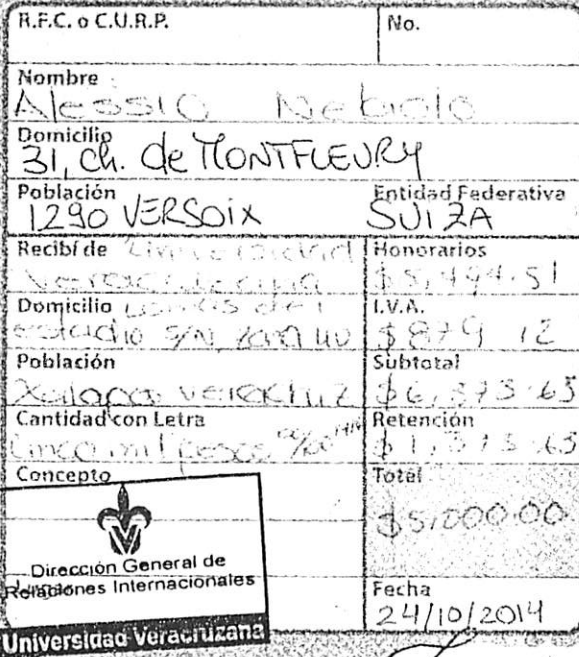 R.F.C. o C.U.R.P.
No.
Nombre
Alessio Nebiolo
Domicilio
31, ch. de MONTFLEURY
Población
1290 VERSOIX
Entidad Federativa
SUIZA
Recibí de Universidad
Veracruzana
Honorarios
$5,494.51
Domicilio Lomas del
estadio S/N, zona UV
I.V.A.
$879.12
Población
Xalapa Veracruz
Subtotal
$6,373.63
Cantidad con Letra
Cinco mil pesos 00/100
Retención
$1,373.63
Concepto
Total
$5,000.00
Dirección General de
Relaciones Internacionales
Universidad Veracruzana
Fecha
24/10/2014